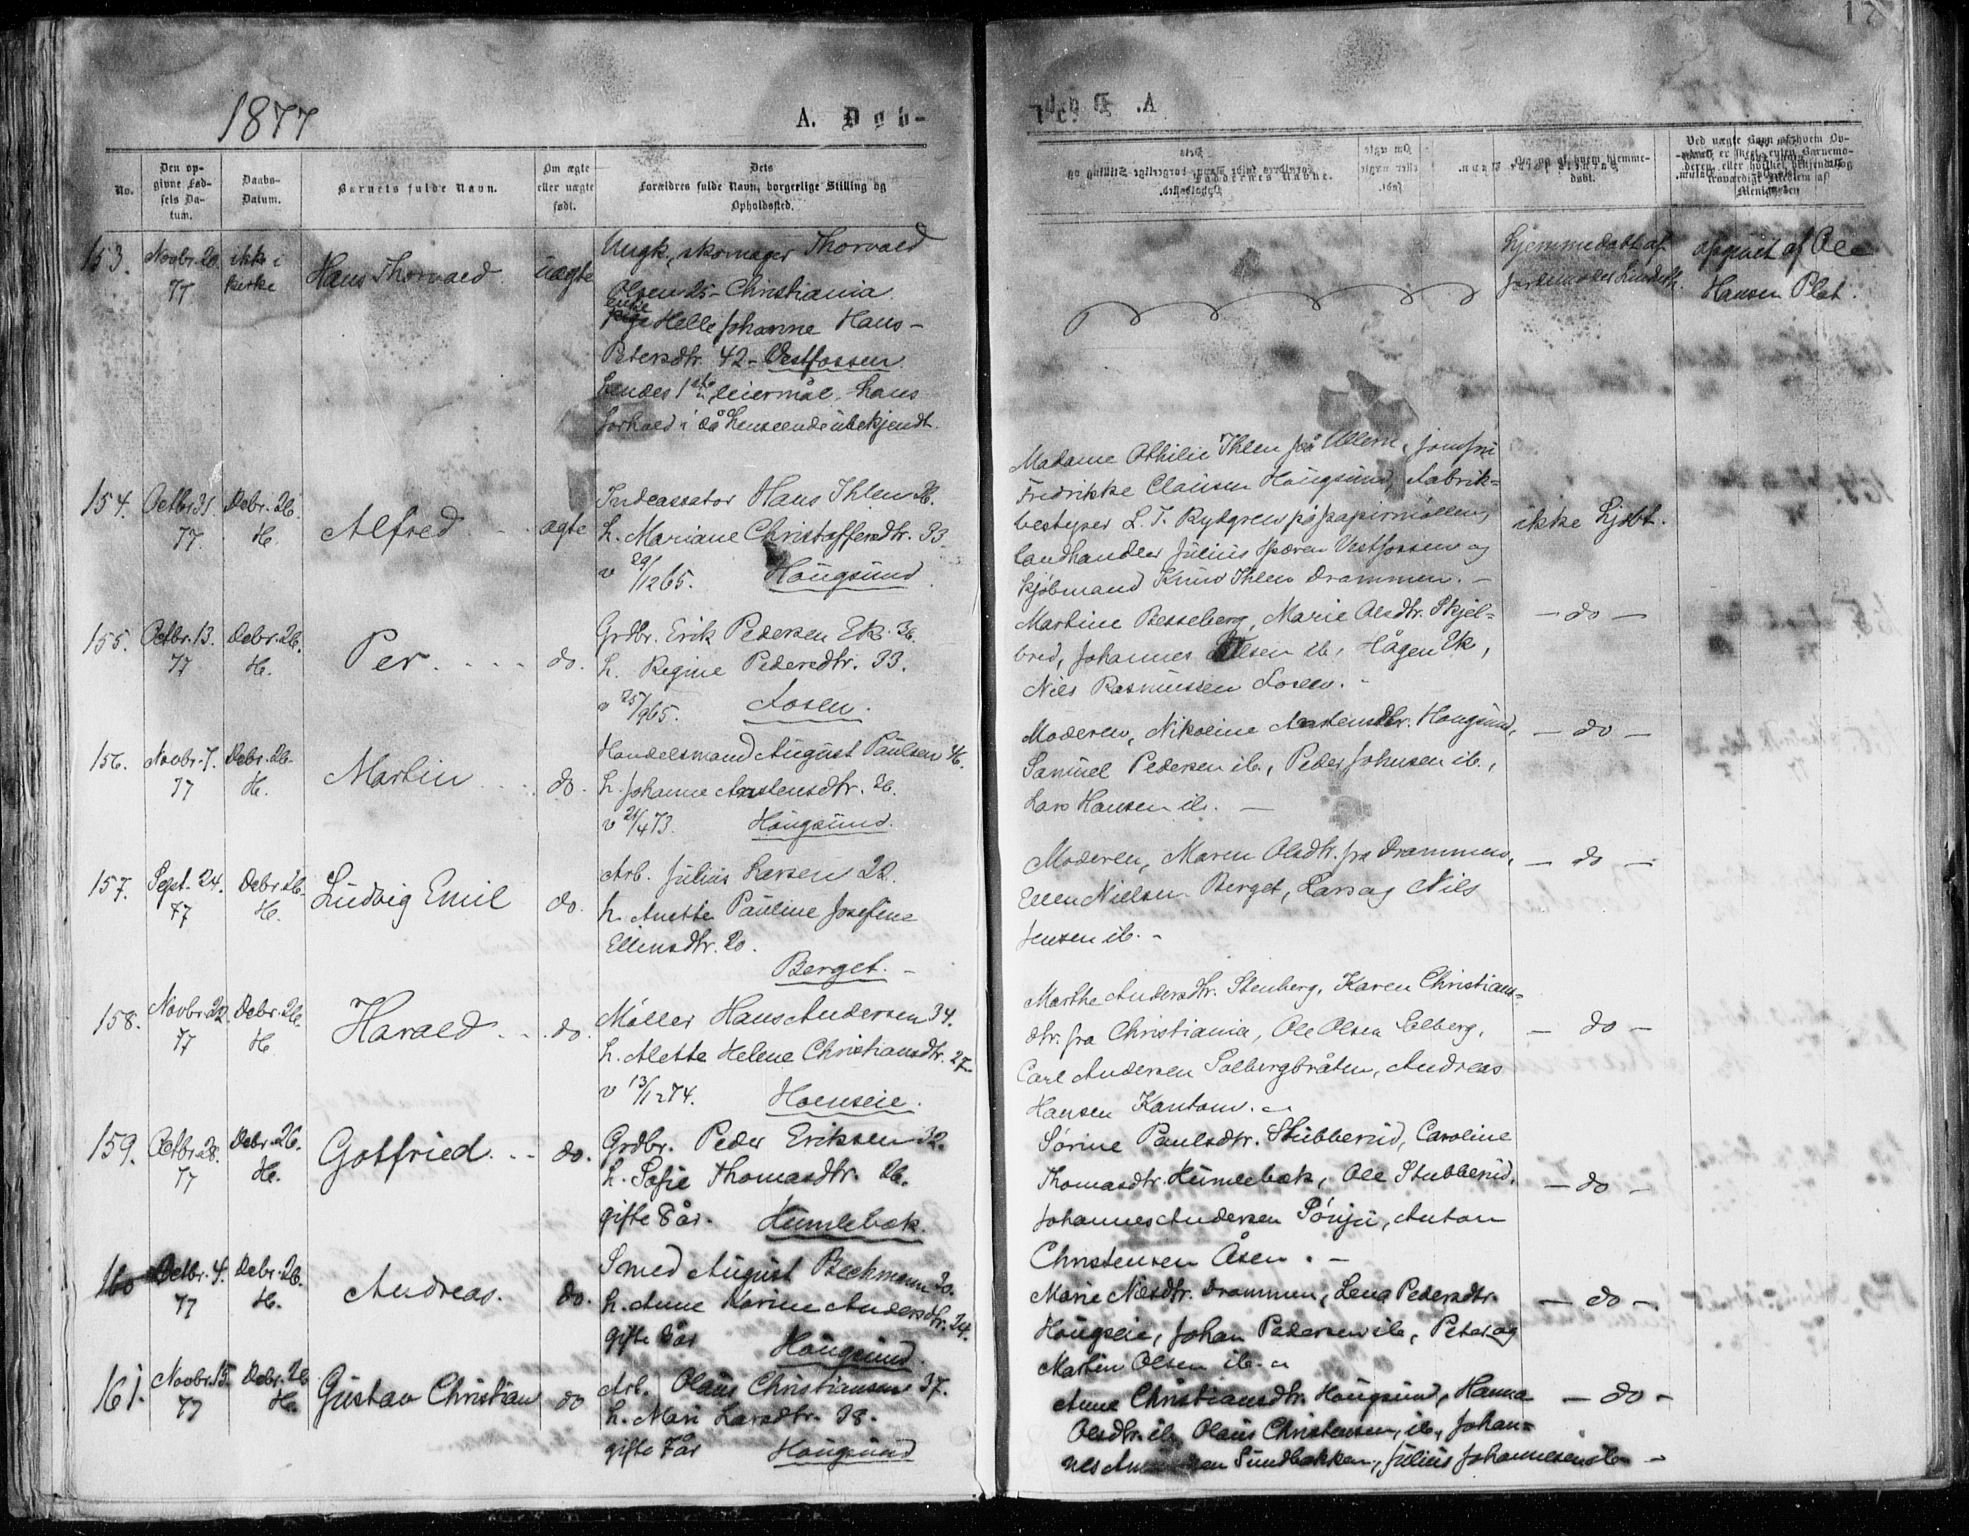 1877
A. Døb-
No.
Den op-
givne Fød-
sels Da-
tum.
Daabs-
Datum.
Barnets fulde Navn.
Om ægte
eller uægte
født.
Dets
Forældres fulde Navn, borgerlige Stilling og
Opholdssted.
153.
Novbr. 20
77
ikke i
kirke
Hans Thorvald
uægte
Ungk, skomager Thorvald
Olsen 25 - Christiania
Enke
Helle Johanne Hans-
Petersdtr. 42 - Vestfossen
hendes 1ste leiermål, hans
forhold i så henseende ubekjendt.
154.
Octbr. 31
77.
Debr. 26.
H.
Alfred
ægte
Indcassator Hans Ihlen 36.
h. Mariane Christoffersdtr. 33
v 29/12 65. Hougsund
155.
Octbr. 13.
77
Debr. 26.
H.
Per
do.
Grdbr. Erik Pedersen Ek. 36.
h. Regine Pedersdtr. 33.
v 25/9 65. Losen.
156.
Novbr. 7.
77
Debr. 26.
H.
Martin
do.
Handelsmand August Paulsen 46.
h. Johanne Arstensdtr. 26.
v 21/4 73. Hougsund.
157.
Sept. 24.
77
Debr. 26.
H.
Ludvig Emil
do.
Arb. Julius Larsen 22.
h. Anette Pauline Josefine
Ellensdtr. 20.
Berget. -
158.
Novbr. 22.
77
Debr. 26.
H
Harald
do.
Møller Hans Andersen 34.
h. Alette Helene Christiansdtr. 27
v 13/12 74. Hoenseie.
159.
Octbr. 28.
77
Debr. 26.
H.
Gotfried
do.
Grdbr. Peder Eriksen 32.
h. Sofie Thomasdtr. 26.
gifte 8 år. Humlebæk.
160
Octbr. 4.
77
Debr. 26.
H.
Andreas.
do.
Smed August Beckmann 30.
h. Anne Karine Andersdtr. 24.
gifte 3 år Hougsund.
161.
Novbr. 15.
77
Debr. 26
H.
Gustav Christian
do
Arb. Olaus Christiansen 37.
h. Mari Larsdtr. 38.
gifte 7 år Hougsund
17
Faddernes Navne.
Om og af hvem hjemme-
døbt.
hjemmedøbt af
jordemoder
opgivet af Ole
Hansen Plat.
Madame Othilie Ihlen på Ullern, jomfru
Fredrikke Clausen Hougsund, Fabrik-
bestyrer L. T. Rydgren på papirmøllen,
landhandler Julius Spæren Vestfossen og
kjøbmand Knud Ihlen Drammen. -
ikke hjdbt.
Martine Besseberg, Marie Olsdtr. Skjel-
bred, Johannes Olsen ib, Hågen Ek,
Nils Rasmussen Losen. -
- do -
Moderen, Nikoline Arstensdtr. Hougsund,
Samuel Pedersen ib., Peder Johnsen ib.,
Lars Hansen ib. -
- do -
Moderen, Maren Olsdtr. fra Drammen,
Ellen Nielsen Berget, Lars og Nils
Jensen ib. -
- do -
Marthe Andersdtr. Stenberg, Karen Christians-
dtr. fra Christiania, Ole Olsen Solberg,
Carl Andersen Solbergbråten, Andreas
Hansen Kantom.
- do -
Sørine Paulsdtr. Stubberud, Caroline
Thomasdtr. Humlebæk, Ole Stubberud,
Johannes Andersen Sønju, Anton
Christensen Åsen. -
- do -
Marie Nilsdtr. Drammen, Lena Pedersdtr.
Hougseie, Johan Pedersen ib, Peter og
Martin Olsen ib.
- do -
Anne Christiansdtr. Hougsund, Hanna
Olsdtr. ib, Olaus Christensen, ib, Johan-
nes Sundbakken, Julius Johannesen ib -
- do -